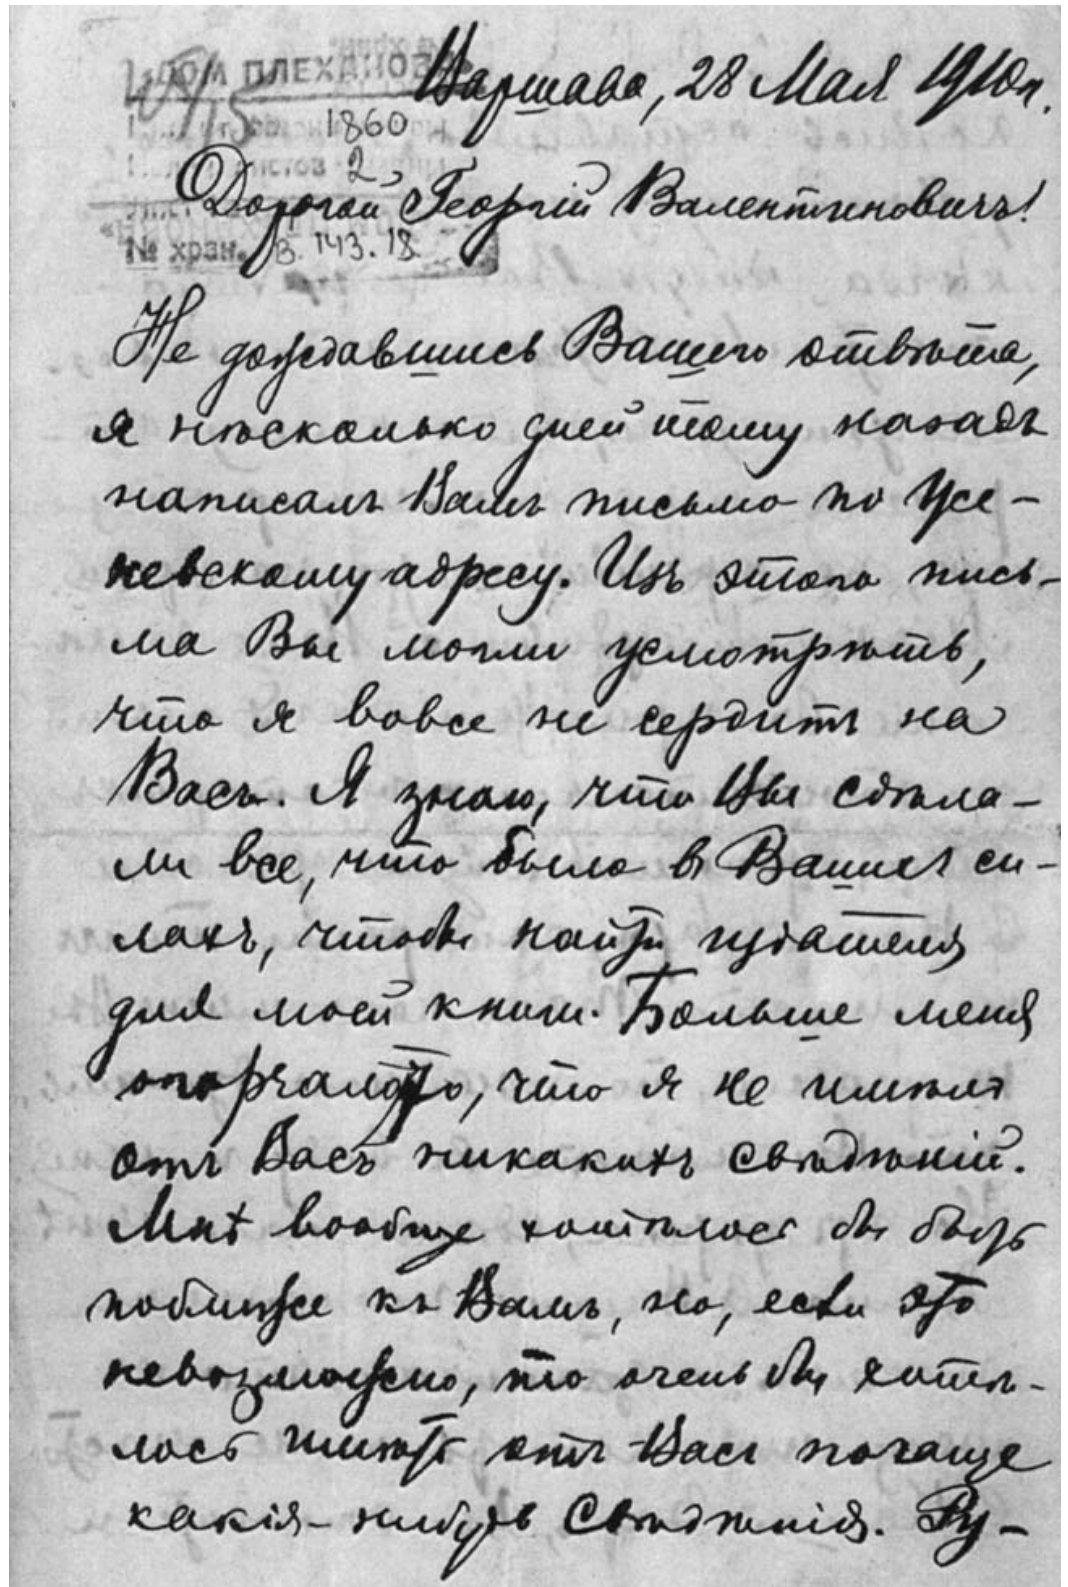 ДОМ ПЛЕХАНОВА
1860
2
№ хран. В. 143. 18
Варшава, 28 Мая 1910 г.
Дорогой Георгій Валентиновичъ!
Не дождавшись Вашего отвѣта,
я нѣсколько дней тому назадъ
написалъ Вамъ письмо по Же-
невскому адресу. Изъ этого пись-
ма Вы могли усмотрѣть,
что я вовсе не сердитъ на
Васъ. Я знаю, что Вы сдѣла-
ли все, что было в Вашихъ си-
лахъ, чтобы найти издателя
для моей книги. Больше меня
огорчало то, что я не имѣлъ
отъ Васъ никакихъ свѣдѣній.
Мнѣ вообще хотѣлось бы быть
поближе къ Вамъ, но, если это
невозможно, то очень бы хотѣ-
лось имѣть отъ Васъ почаще
какія-нибудь свѣдѣнія. Ру-